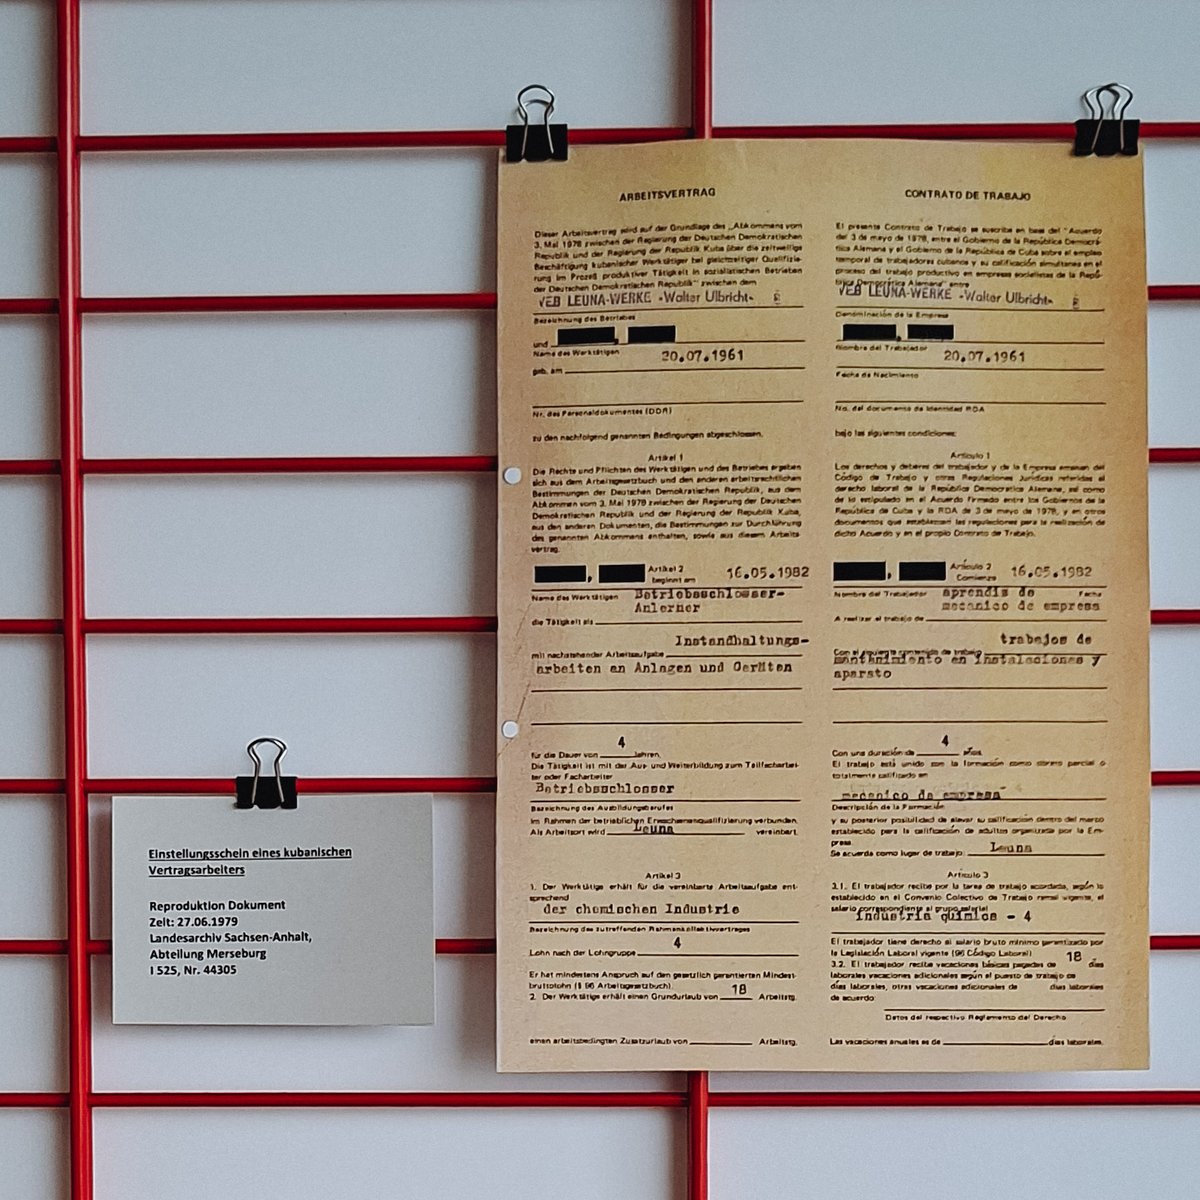 ARBEITSVERTRAG
Dieser Arbeitsvertrag wird auf der Grundlage des „Abkommens vom
3. Mai 1978 zwischen der Regierung der Deutschen Demokratischen
Republik und der Regierung der Republik Kuba über die zeitweilige
Beschäftigung kubanischer Werktätiger bei gleichzeitiger Qualifizie-
rung im Prozeß produktiver Tätigkeit in sozialistischen Betrieben
der Deutschen Demokratischen Republik" zwischen dem
VEB LEUNA-WERKE -Walter Ulbricht-
Bezeichnung des Betriebes
und
Name des Werktätigen
20.07.1961
geb. am
Nr. des Personaldokumentes (DDR)
zu den nachfolgend genannten Bedingungen abgeschlossen.
Artikel 1
Die Rechte und Pflichten des Werktätigen und des Betriebes ergeben
sich aus dem Arbeitsgesetzbuch und den anderen arbeitsrechtlichen
Bestimmungen der Deutschen Demokratischen Republik, aus dem
Abkommen vom 3. Mai 1978 zwischen der Regierung der Deutschen
Demokratischen Republik und der Regierung der Republik Kuba,
aus den anderen Dokumenten, die Bestimmungen zur Durchführung
des genannten Abkommens enthalten, sowie aus diesem Arbeits-
vertrag.
Artikel 2
beginnt am 16.05.1982
Name des Werktätigen
Betriebsschlosser-
Anlerner
die Tätigkeit als
Instandhaltungs-
mit nachstehender Arbeitsaufgabe
arbeiten an Anlagen und Geräten
4
für die Dauer von Jahren.
Die Tätigkeit ist mit der Aus- und Weiterbildung zum Teilfacharbei-
ter oder Facharbeiter
Betriebsschlosser
Bezeichnung des Ausbildungsberufes
im Rahmen der betrieblichen Erwachsenenqualifizierung verbunden.
Als Arbeitsort wird Leuna vereinbart.
Artikel 3
1. Der Werktätige erhält für die vereinbarte Arbeitsaufgabe ent-
sprechend
der chemischen Industrie
Bezeichnung des zutreffenden Rahmenkollektivvertrages
4
Lohn nach der Lohngruppe
Er hat mindestens Anspruch auf den gesetzlich garantierten Mindest-
bruttolohn (§ 96 Arbeitsgesetzbuch).
2. Der Werktätige erhält einen Grundurlaub von 18 Arbeitstg.
einen arbeitsbedingten Zusatzurlaub von Arbeitstg.
CONTRATO DE TRABAJO
El presente Contrato de Trabajo se suscribe en base del "Acuerdo
del 3 de mayo de 1978, entre el Gobierno de la República Democrá-
tica Alemana y el Gobierno de la República de Cuba sobre el empleo
temporal de trabajadores cubanos y su calificación simultanea en el
proceso del trabajo productivo en empresas socialistas de la Repú-
blica Democrática Alemana" entre
VEB LEUNA-WERKE -Walter Ulbricht-
Denominación de la Empresa
Nombre del Trabajador
20.07.1961
Fecha de Nacimiento
No. del documento de Identidad RDA
bajo las siguientes condiciones:
Artículo 1
Los derechos y deberes del trabajador y de la Empresa emanan del
Código de Trabajo y otras Regulaciones Jurídicas referidas al
derecho laboral de la República Democratica Alemana, así como
de lo estipulado en el Acuerdo Firmado entre los Gobiernos de la
República de Cuba y la RDA de 3 de mayo de 1978, y en otros
documentos que establezcan las regulaciones para la realización de
dicho Acuerdo y en el propio Contrato de Trabajo.
Artículo 2
Comienza 16.05.1982
Nombre del Trabajador Fecha
aprendis de
mecanico de empresa
A realizar el trabajo de
trabajos de
Con el siguiente contenido de trabajo
mantenimiento en instalaciones y
aparato
4
Con una duración de años.
El trabajo está unido con la formación como obrero parcial o
totalmente calificado en
mecanico de empresa
Descripción de la Formación
y su posterior posibilidad de elevar su calificación dentro del marco
establecido para la calificación de adultos organizada por la Em-
presa.
Se acuerda como lugar de trabajo: Leuna
Artículo 3
3.1. El trabajador recibe por la tarea de trabajo acordada, según lo
establecido en el Convenio Colectivo de Trabajo ramal vigente, el
salario correspondiente al grupo salarial
industria quimica - 4
El trabajador tiene derecho al salario bruto mínimo garantizado por
la Legislación Laboral vigente (96 Código Laboral)
3.2. El trabajador recibe vacaciones básicas pagadas de 18 días
laborales vacaciones adicionales según el puesto de trabajo de
días laborales, otras vacaciones adicionales de días laborales
de acuerdo:
Datos del respectivo Reglamento del Derecho
Las vacaciones anuales es de días laborales.
Einstellungsschein eines kubanischen
Vertragsarbeiters
Reproduktion Dokument
Zeit: 27.06.1979
Landesarchiv Sachsen-Anhalt,
Abteilung Merseburg
I 525, Nr. 44305